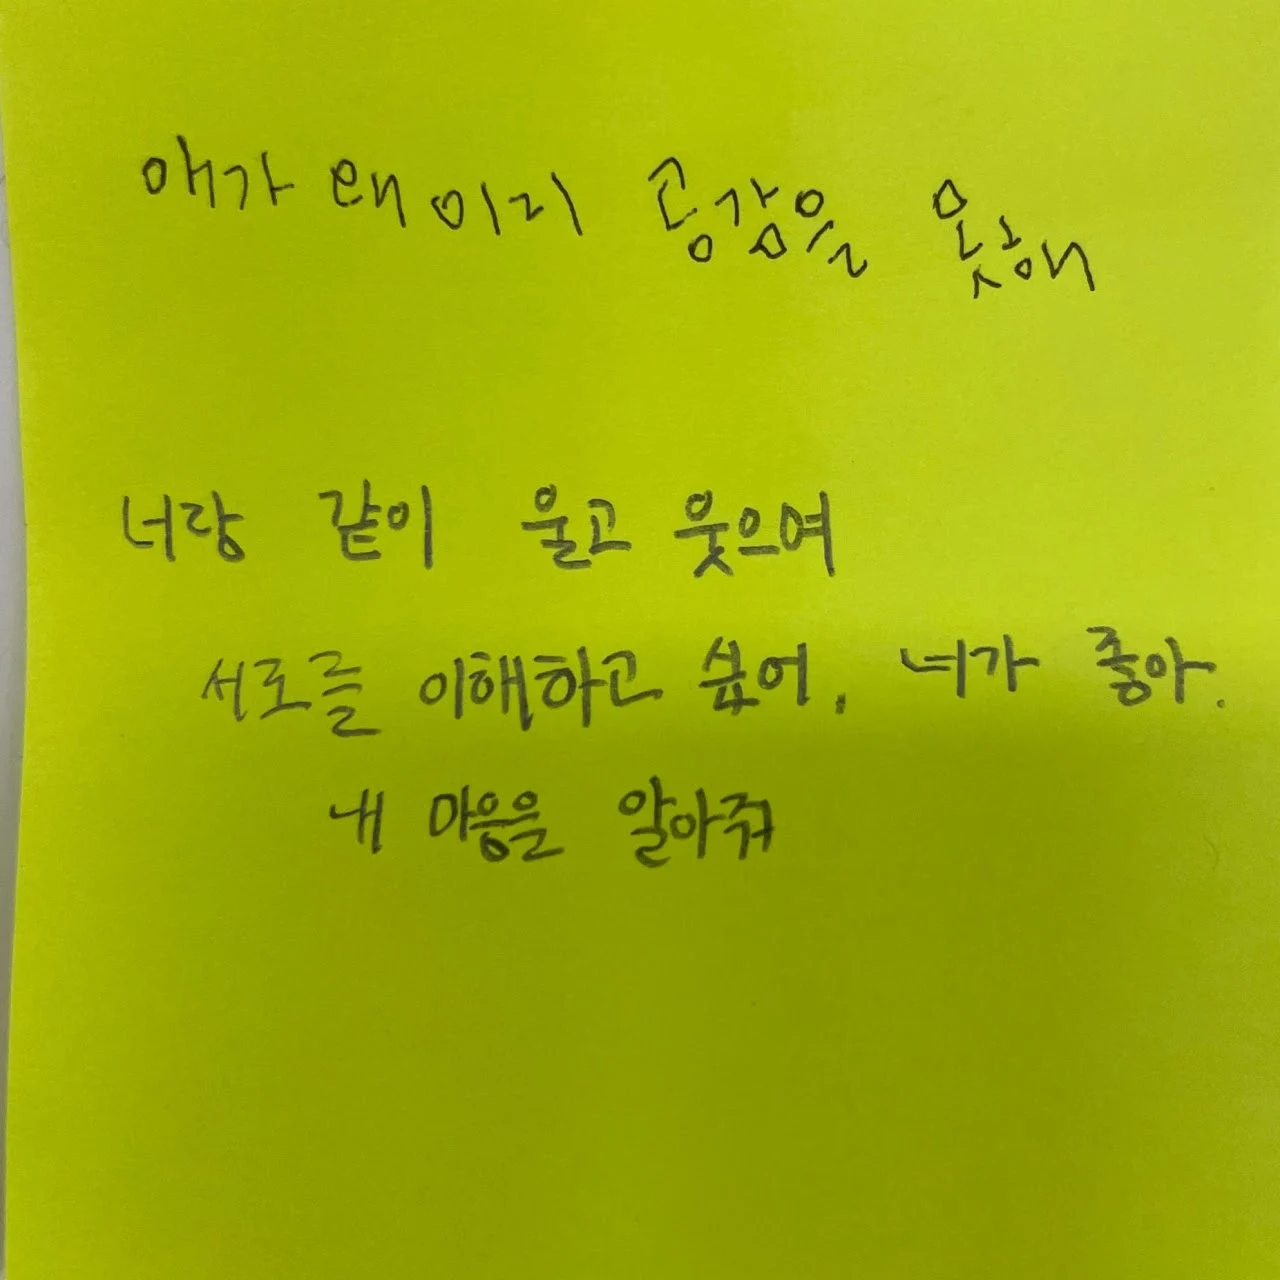 애가 왜 이리 공감을 못해
너랑 같이 울고 웃으며
서로를 이해하고 싶어. 너가 좋아.
내 마음을 알아줘